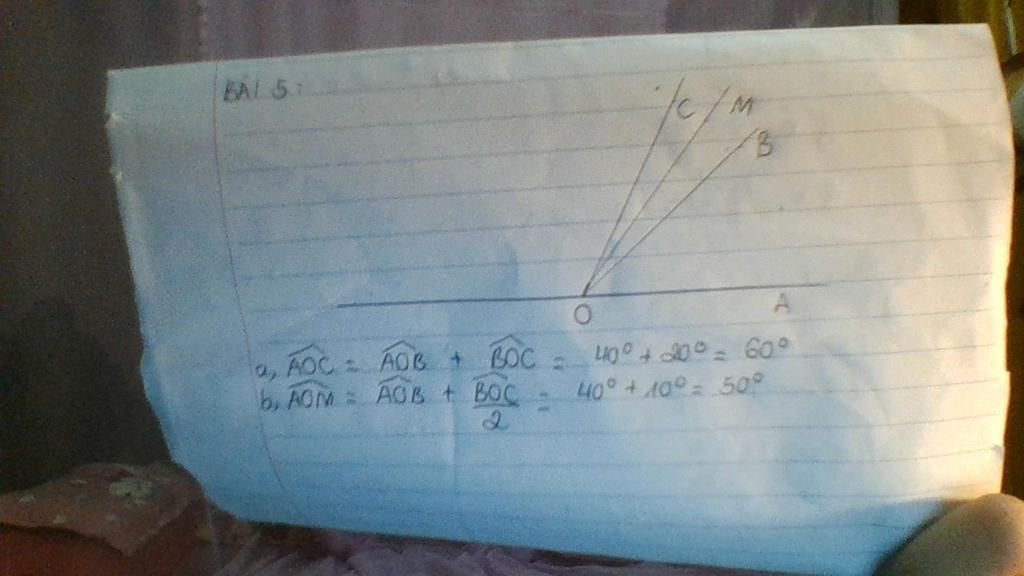 BÀI 5:
C M
B
O A
a, AOC = AOB + BOC = 40° + 20° = 60°
b, AOM = AOB + BOC/2 = 40° + 10° = 50°